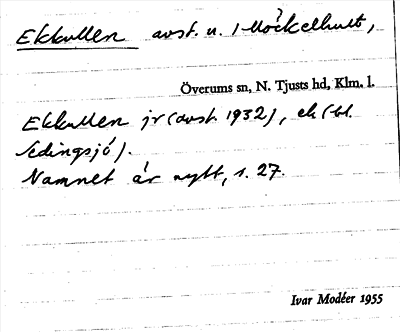 Ekkullen avst. u. Möckelhult,
Överums sn, N. Tjusts hd, Klm. l.
Ekkullen jr (avst. 1932), ek (bl.
Sedingsjö).
Namnet är nytt, s. 27.
Ivar Modéer 1955